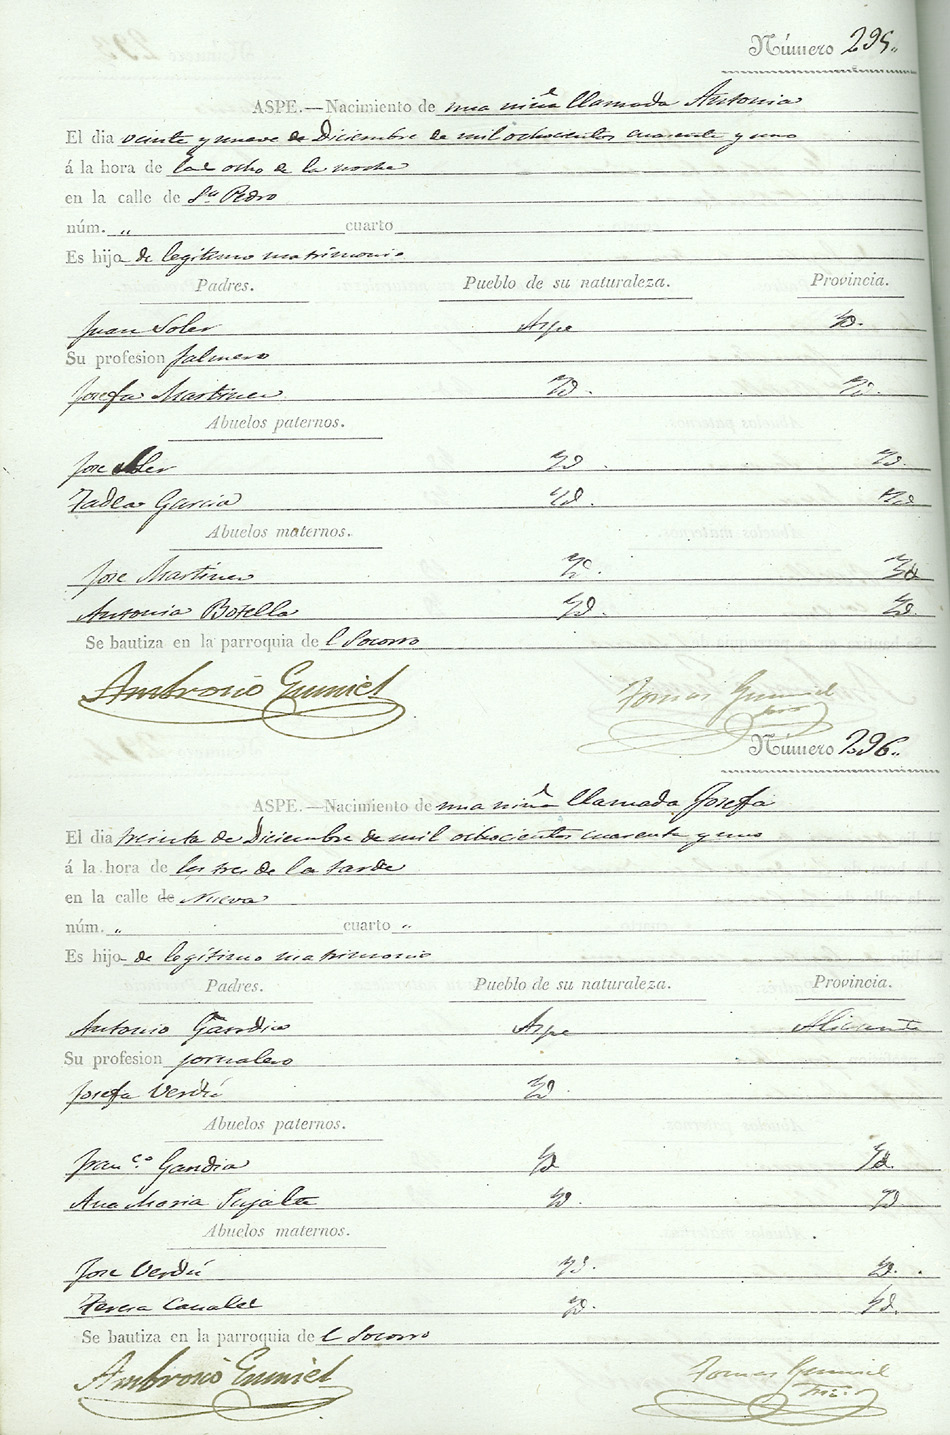 Número 295.
ASPE.—Nacimiento de una niña llamada Antonia
El dia veinte y nueve de Diciembre de mil ochocientos cuarenta y uno
á la hora de las ocho de la noche
en la calle de Sn Pedro
núm. „ cuarto
Es hijo de legitimo matrimonio
Padres. Pueblo de su naturaleza. Provincia.
Juan Soler Aspe Yd.
Su profesion palmero
Josefa Martinez Yd. Yd.
Abuelos paternos.
Jose Soler Yd Yd.
Tadea Garcia Yd. Yd
Abuelos maternos.
Jose Martinez Yd. Yd
Antonia Botella Yd. Yd.
Se bautiza en la parroquia del Socorro
Ambrosio Gumiel Tomas Gumiel
Número 296.
ASPE.—Nacimiento de una niña llamada Josefa
El dia treinta de Diciembre de mil ochocientos cuarenta y uno
á la hora de las tres de la tarde
en la calle de Nueva
núm. „ cuarto „
Es hijo de legitimo matrimonio
Padres. Pueblo de su naturaleza. Provincia.
Antonio Gandia Aspe Alicante
Su profesion jornalero
Josefa Verdú Yd
Abuelos paternos.
Franco. Gandia Yd Yd.
Ana Maria Pujalte Yd. Yd
Abuelos maternos.
Jose Verdú Yd. Yd.
Teresa Yd. Yd.
Se bautiza en la parroquia del Socorro
Ambrosio Gumiel Tomas Gumiel